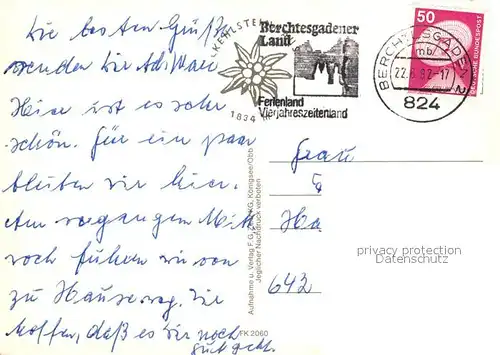 Die besten Grüße
senden Dir
Hier ist es sehr
schön. Für ein paar
bleiben wir hier.
Am vergangenen Mitt
woch fuhren wir von
zu Hause weg. Wir
hoffen, daß es Dir noch
gut geht.
KEHLSTEIN
1834 m
Berchtesgadener
Land
Ferienland
Vierjahreszeitenland
50
DEUTSCHE BUNDESPOST
BERCHTESGADEN 2
mb
22.6.82-17
824
Frau
Ha
642
privacy protection
Datenschutz
Aufnahme u. Verlag F. G. KG, Königsee/Obb.
Jeglicher Nachdruck verboten
FK 2060